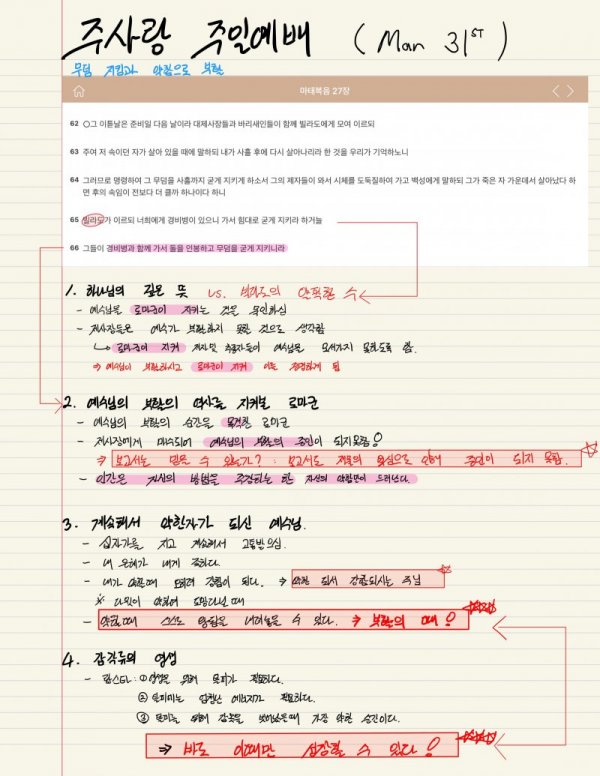 주사랑 주일예배 (Mar 31ST)
무덤 지킴과 약함으로 부활
마태복음 27장
62 ○그 이튿날은 준비일 다음 날이라 대제사장들과 바리새인들이 함께 빌라도에게 모여 이르되
63 주여 저 속이던 자가 살아 있을 때에 말하되 내가 사흘 후에 다시 살아나리라 한 것을 우리가 기억하노니
64 그러므로 명령하여 그 무덤을 사흘까지 굳게 지키게 하소서 그의 제자들이 와서 시체를 도둑질하여 가고 백성에게 말하되 그가 죽은 자 가운데서 살아났다 하
면 후의 속임이 전보다 더 클까 하나이다 하니
65 빌라도가 이르되 너희에게 경비병이 있으니 가서 힘대로 굳게 지키라 하거늘
66 그들이 경비병과 함께 가서 돌을 인봉하고 무덤을 굳게 지키니라
1. 하나님의 깊은 뜻 vs. 빌라도의 악한 수
- 예수님을 로마군이 지키는 것을 용인하심
- 제사장들은 예수가 부활하지 못할 것으로 생각함
로마군이 지켜 제자및 추종자들이 예수님을 모셔가지 못하도록 함.
⇒ 예수님이 부활하시고 로마군이 지켜 이를 증명하게 됨
2. 예수님의 부활의 역사를 지켜본 로마군
- 예수님의 부활의 순간을 목격한 로마군
- 제사장에게 매수되어 예수님의 부활의 증인이 되지못함!
⇒ 보고서는 믿을 수 있는가? : 보고서도 제물의 욕심으로 인해 증인이 되지 못함.
- 인간은 자신의 방법을 주장하는 한 자신의 악함만이 드러난다.
3. 계속해서 약한자가 되신 예수님
- 십자가를 지고 계속해서 고통받으심.
- 내 은혜가 네게 족하다.
- 내가 약할때 도리어 강함이 된다. ⇒ 약한 데서 강함되시는 주님
※ 다윗이 약하여 도망다닐때
- 약할때 스스로 왕관을 내려놓을 수 있다. ⇒ 부활의 때!
4. 갑각류의 영성
- 랍스타 : ① 성장을 위해 탈피가 필요하다.
② 탈피에는 엄청난 에너지가 필요하다.
③ 탈피는 위해 갑옷을 벗어났을때 가장 약한 순간이다.
⇒ 바로 이때만 성장할 수 있다!